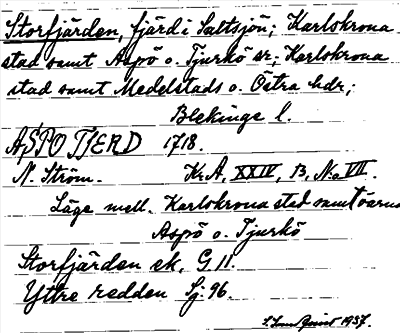 Storfjärden, fjärd i Saltsjön; Karlskrona
stad samt Aspö o. Tjurkö sr; Karlskrona
stad samt Medelstads o. Östra hdr;
Blekinge l.
ASPO FJERD 1718.
N. Ström. Kr.A, XXIV, 13, No VII.
Läge mell. Karlskrona stad samt öarna
Aspö o. Tjurkö
Storfjärden ek. G 11.
Yttre redden Sj. 96.
1937.